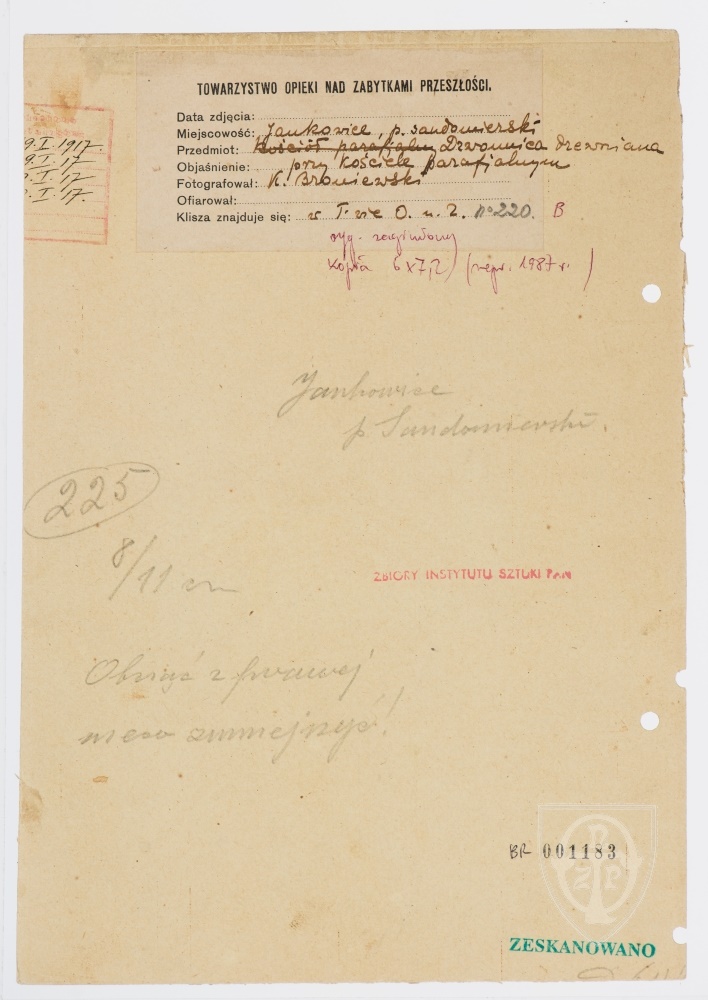 TOWARZYSTWO OPIEKI NAD ZABYTKAMI PRZESZŁOŚCI.
Data zdjęcia:
Miejscowość: Jankowice, p. sandomierski
Przedmiot: Kościół parafialny Dzwonnica drewniana
Objaśnienie: przy kościele parafialnym
Fotografował: K. Broniewski
Ofiarował:
Klisza znajduje się: w T-wie O. n. Z. No 220. B
oryg. zaginiony
kopia 6x7,2 (repr. 1987 r.)
9. I. 1917.
9. I. 17
I. 17
I. 17.
Jankowice
p. Sandomierski.
225
8/11 cm
ZBIORY INSTYTUTU SZTUKI PAN
Obciąć z prawej
nieco zmniejszyć!
BR 001183
TOZP
ZESKANOWANO